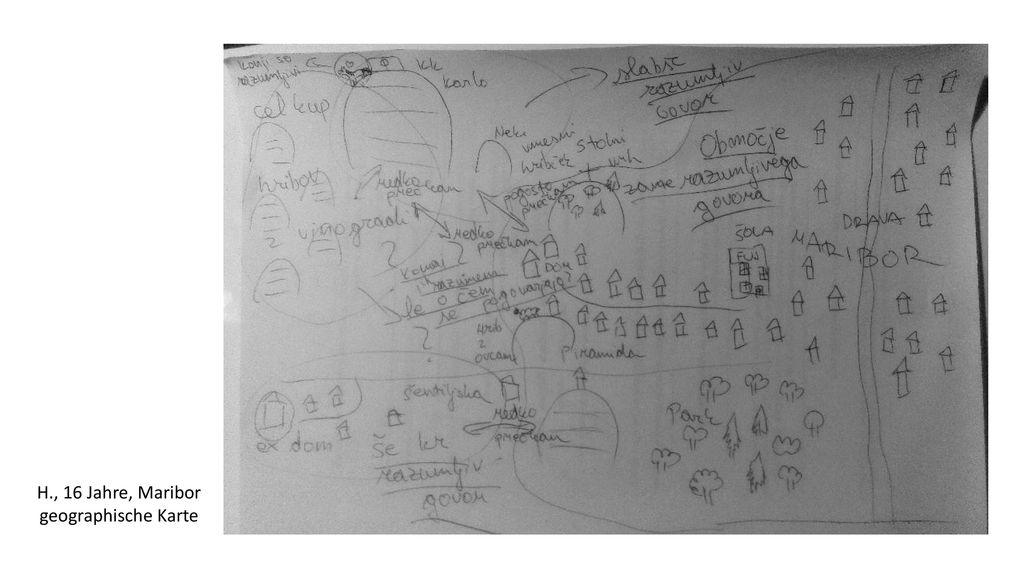 konji so
razumljivi
cel kup
hribov
z
vinogradi
karlo
slabše
razumljiv
govor
Neki
vmesni
hribček
stolni
vrh
Območje
zame razumljivega
govora
redko
prečkam
pogosto
prečkam
redko
prečkam
razumema
le o čem
se pogovarjajo?
DOM
ŠOLA
DRAVA
MARIBOR
hrib
z
ovcami
Piramida
šentiljska
ex dom
še kr
razumljiv
govor
redko
prečkam
Park
H., 16 Jahre, Maribor
geographische Karte